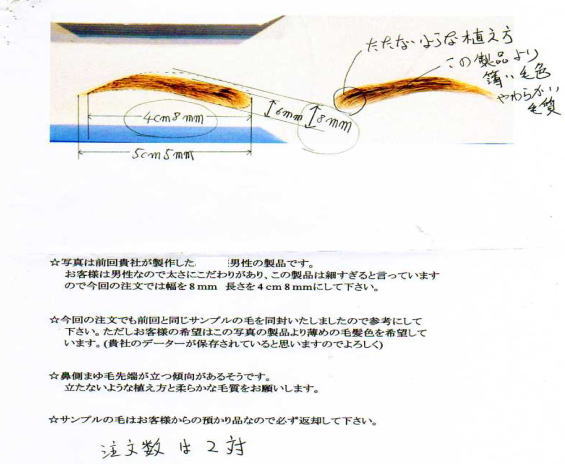 たたないような植え方
この製品より
薄い毛色
やわらかい
毛質
4cm8mm
6mm
8mm
5cm5mm
☆写真は前回貴社が製作した 男性の製品です。
お客様は男性なので太さにこだわりがあり、この製品は細すぎると言っています
ので今回の注文では幅を8mm 長さを4cm8mmにして下さい。
☆今回の注文でも前回と同じサンプルの毛を同封いたしましたので参考にして
下さい。ただしお客様の希望はこの写真の製品より薄めの毛髪色を希望して
います。(貴社のデーターが保存されていると思いますのでよろしく)
☆鼻側まゆ毛先端が立つ傾向があるそうです。
立たないような植え方と柔らかな毛質をお願いします。
☆サンプルの毛はお客様からの預かり品なので必ず返却して下さい。
注文数は2対